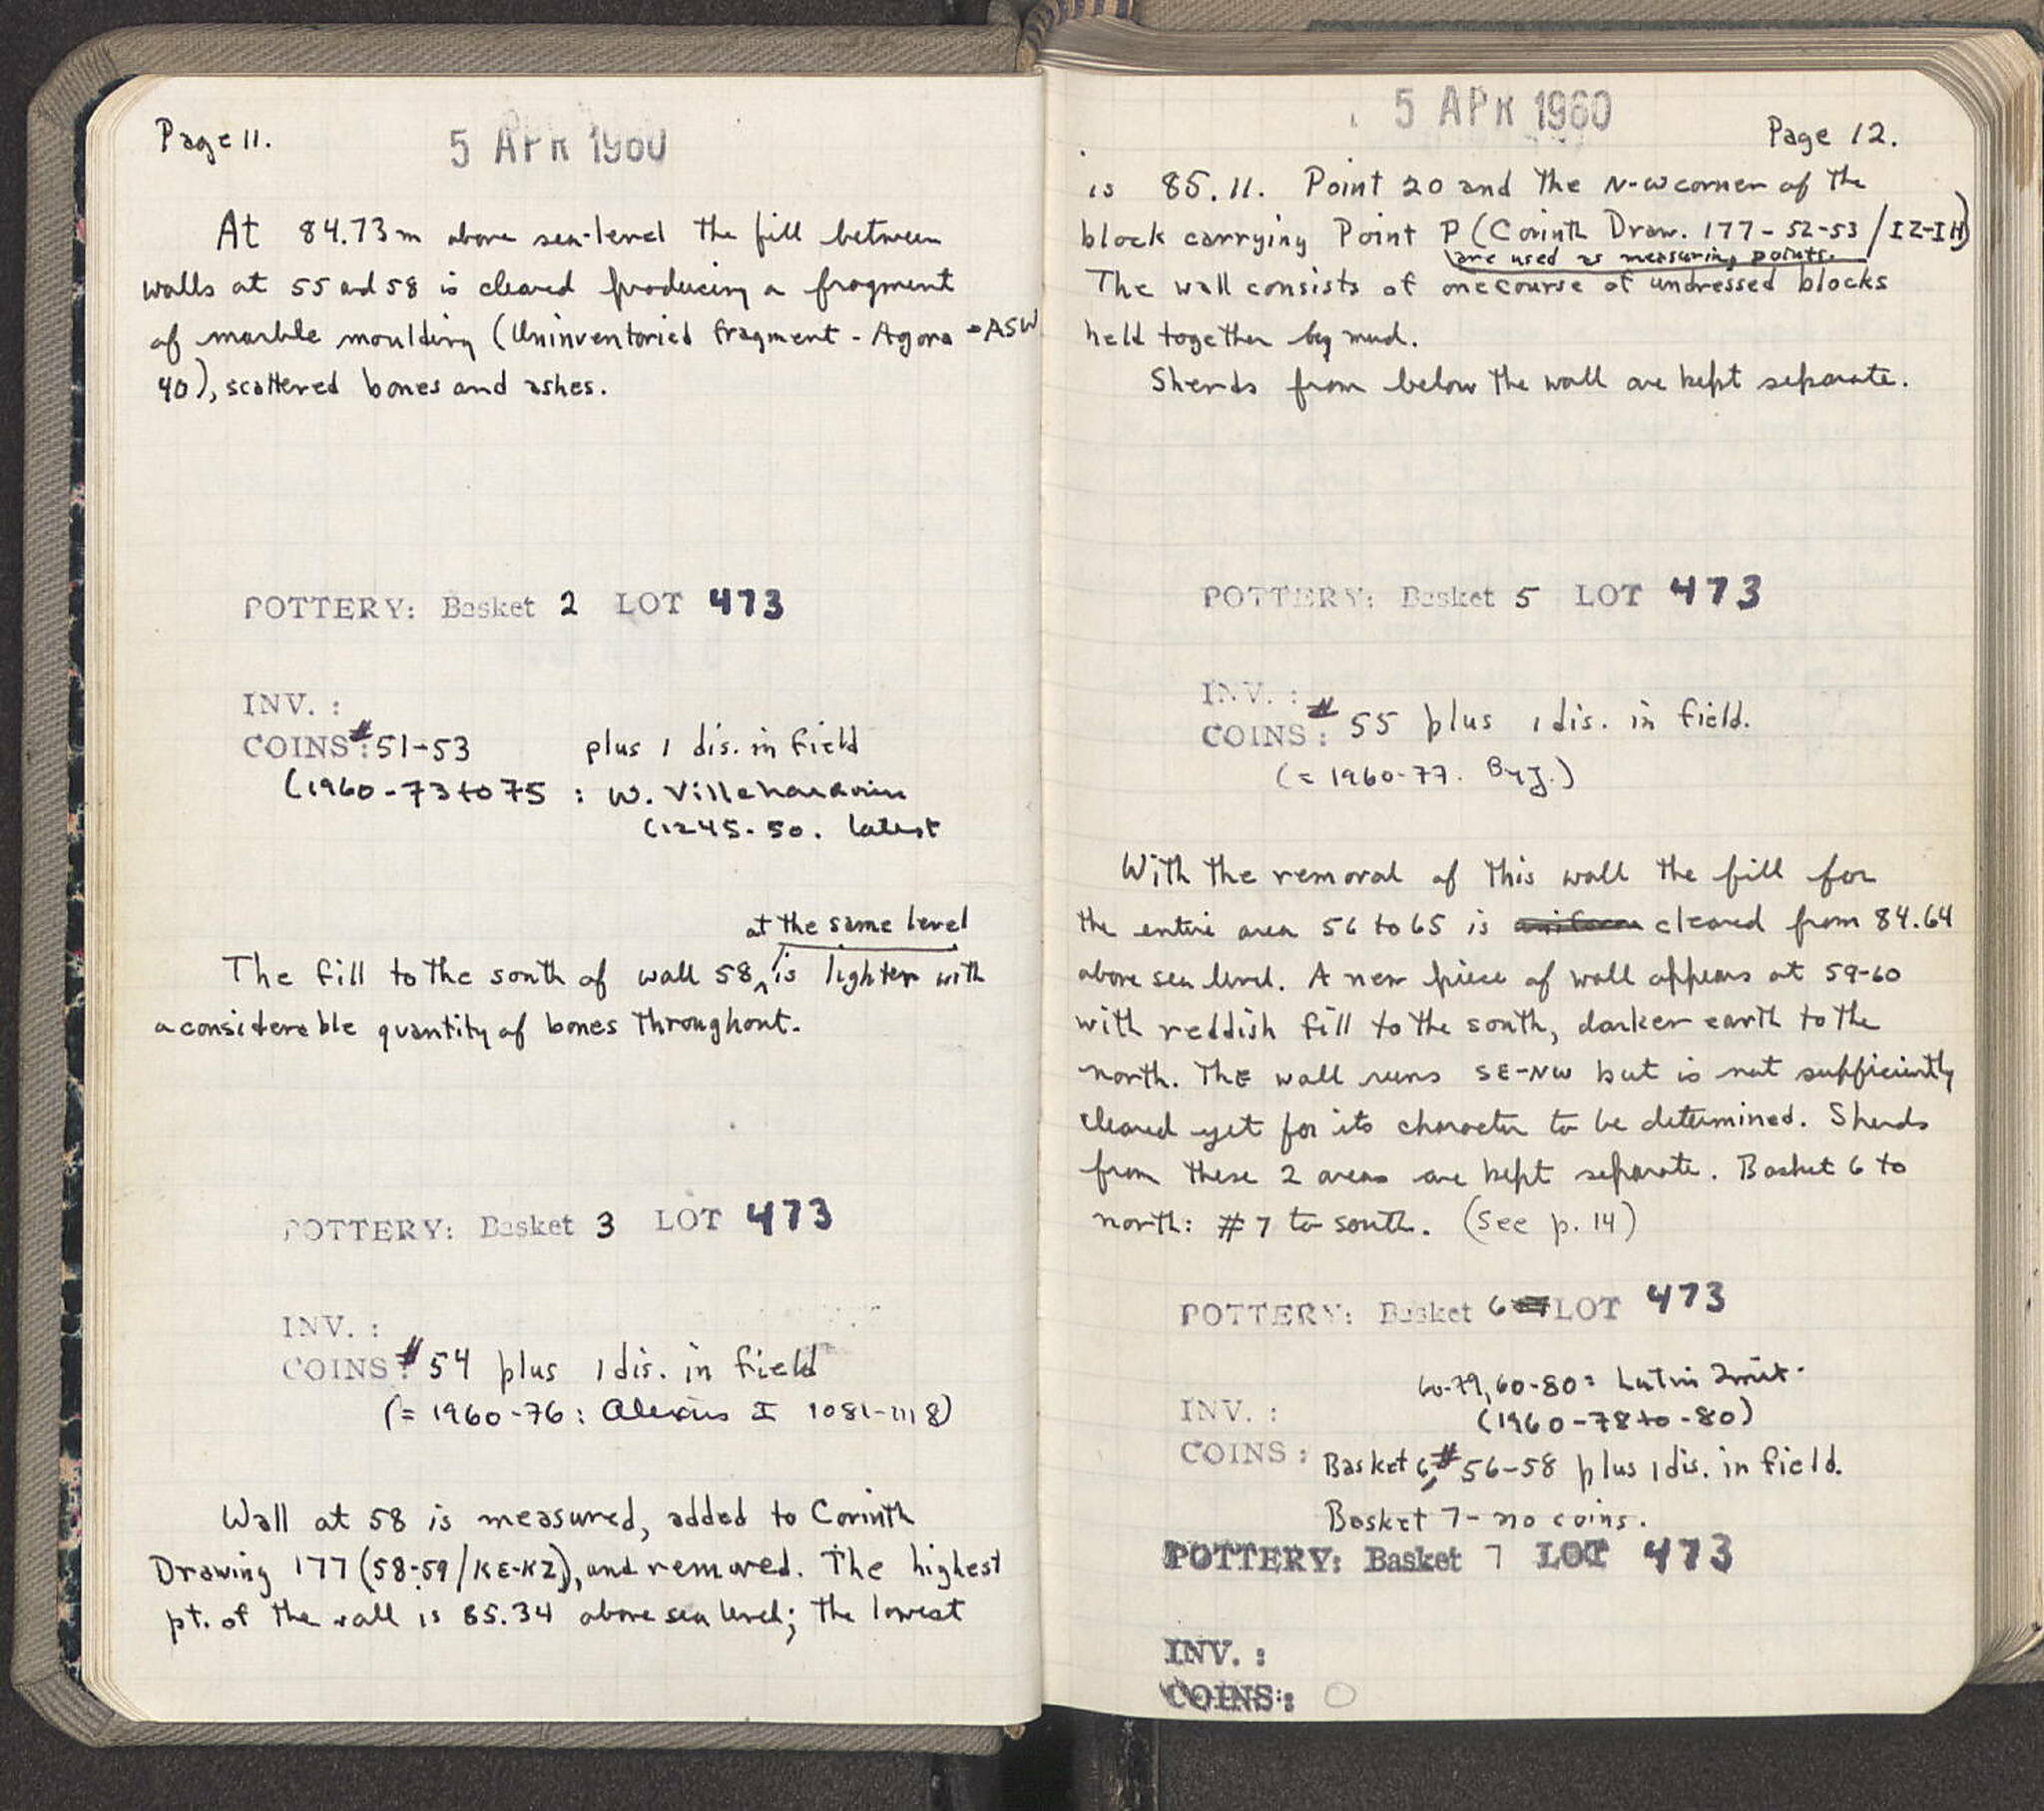 Page 11.
5 APR 1960
At 84.73m above sea-level the fill between
walls at 55 and 58 is cleared producing a fragment
of marble moulding (Uninventoried fragment - Agora - ASW
40), scattered bones and ashes.
POTTERY: Basket 2 LOT 473
INV. :
COINS #: 51-53 plus 1 dis. in field
(1960-73 to 75 : W. Villehardouin
(1245-50. latest
at the same level
The fill to the south of wall 58, is lighter with
a considerable quantity of bones throughout.
POTTERY: Basket 3 LOT 473
INV. :
COINS #: 54 plus 1 dis. in field
(= 1960-76: Alexius I 1081-1118)
Wall at 58 is measured, added to Corinth
Drawing 177 (58-59/KE-KZ), and removed. The highest
pt. of the wall is 85.34 above sea level; the lowest
5 APR 1960
Page 12.
is 85.11. Point 20 and the N-W corner of the
block carrying Point P (Corinth Draw. 177-52-53/IZ-IH)
are used as measuring points.
The wall consists of one course of undressed blocks
held together by mud.
Sherds from below the wall are kept separate.
POTTERY: Basket 5 LOT 473
INV. :
COINS : # 55 plus 1 dis. in field.
(= 1960-77. Byz.)
With the removal of this wall the fill for
the entire area 56 to 65 is uniform cleared from 84.64
above sea level. A new piece of wall appears at 59-60
with reddish fill to the south, darker earth to the
north. The wall runs SE-NW but is not sufficiently
cleared yet for its character to be determined. Sherds
from these 2 areas are kept separate. Basket 6 to
north: #7 to south. (See p. 14)
POTTERY: Basket 6 LOT 473
60-79, 60-80 = Latin Imit.
INV. :
(1960-78 to -80)
COINS : Basket 6, # 56-58 plus 1 dis. in field.
Basket 7 - no coins.
POTTERY: Basket 7 LOT 473
INV. :
COINS: 0